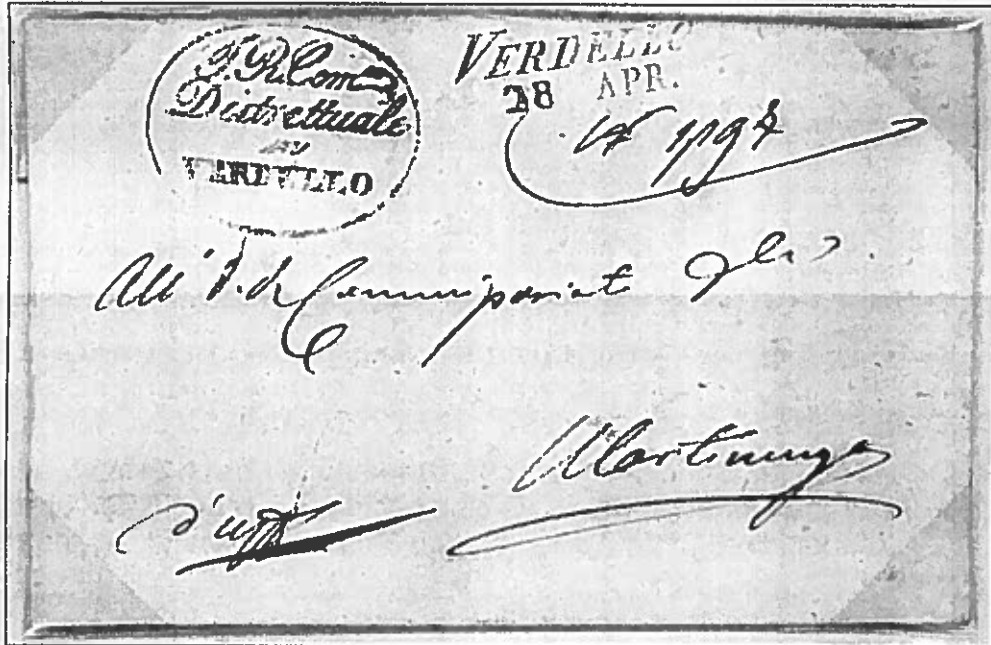 I. R. Com
Distrettuale
DI
VERDELLO
VERDELLO
28 APR.
All' I. R. Commissariato Distr.
Martinengo
d'uff